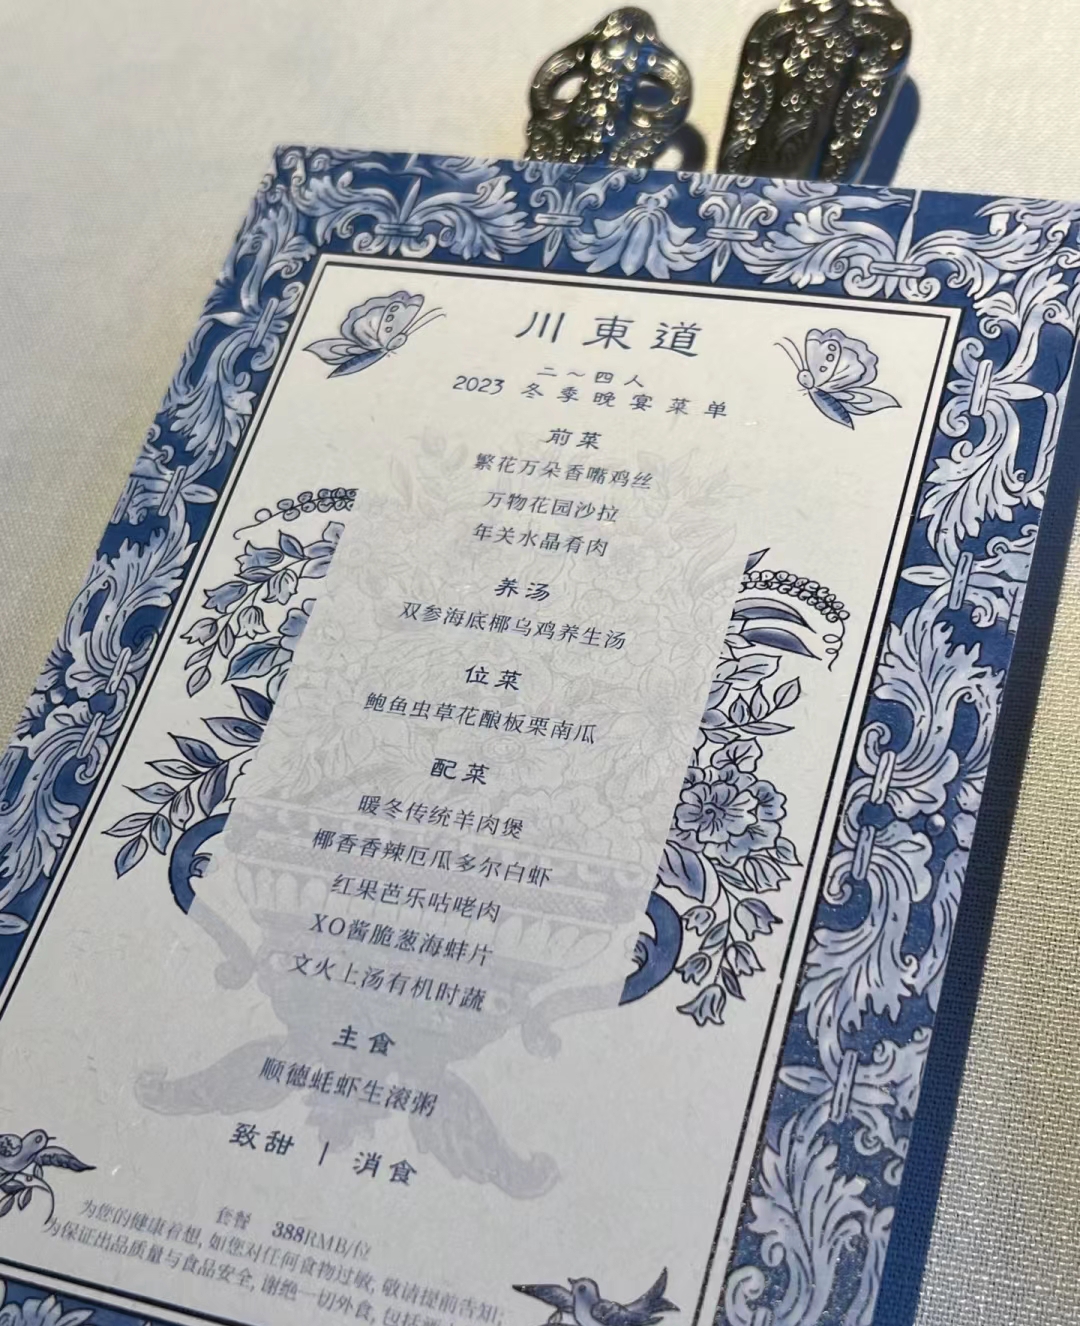 川東道
二～四人
2023 冬季晚宴菜单
前菜
繁花万朵香嘴鸡丝
万物花园沙拉
年关水晶肴肉
养汤
双参海底椰乌鸡养生汤
位菜
鲍鱼虫草花酿板栗南瓜
配菜
暖冬传统羊肉煲
椰香香辣厄瓜多尔白虾
红果芭乐咕咾肉
XO酱脆葱海蚌片
文火上汤有机时蔬
主食
顺德蚝虾生滚粥
致甜 | 消食
套餐 388RMB/位
为您的健康着想, 如您对任何食物过敏, 敬请提前告知;
为保证出品质量与食品安全, 谢绝一切外食, 包括